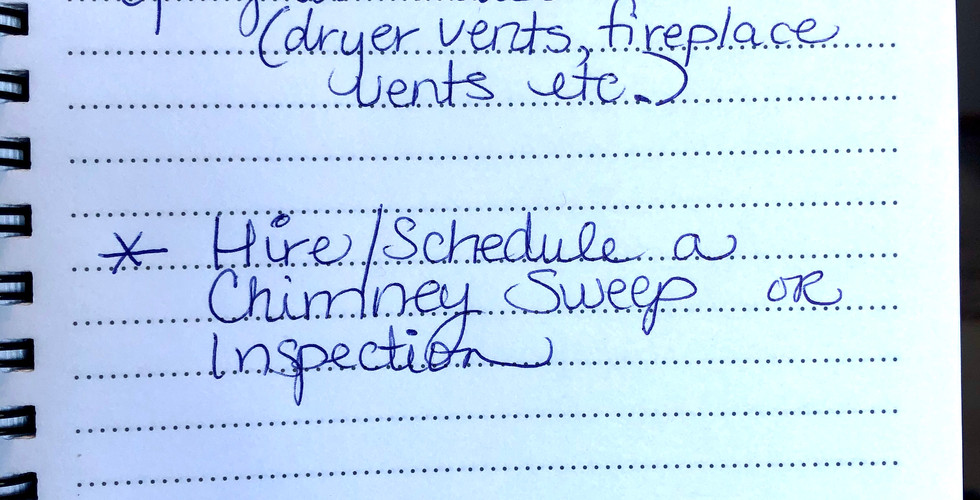 (dryer vents, fireplace
vents etc.)
* Hire/Schedule a
Chimney Sweep OR
Inspection